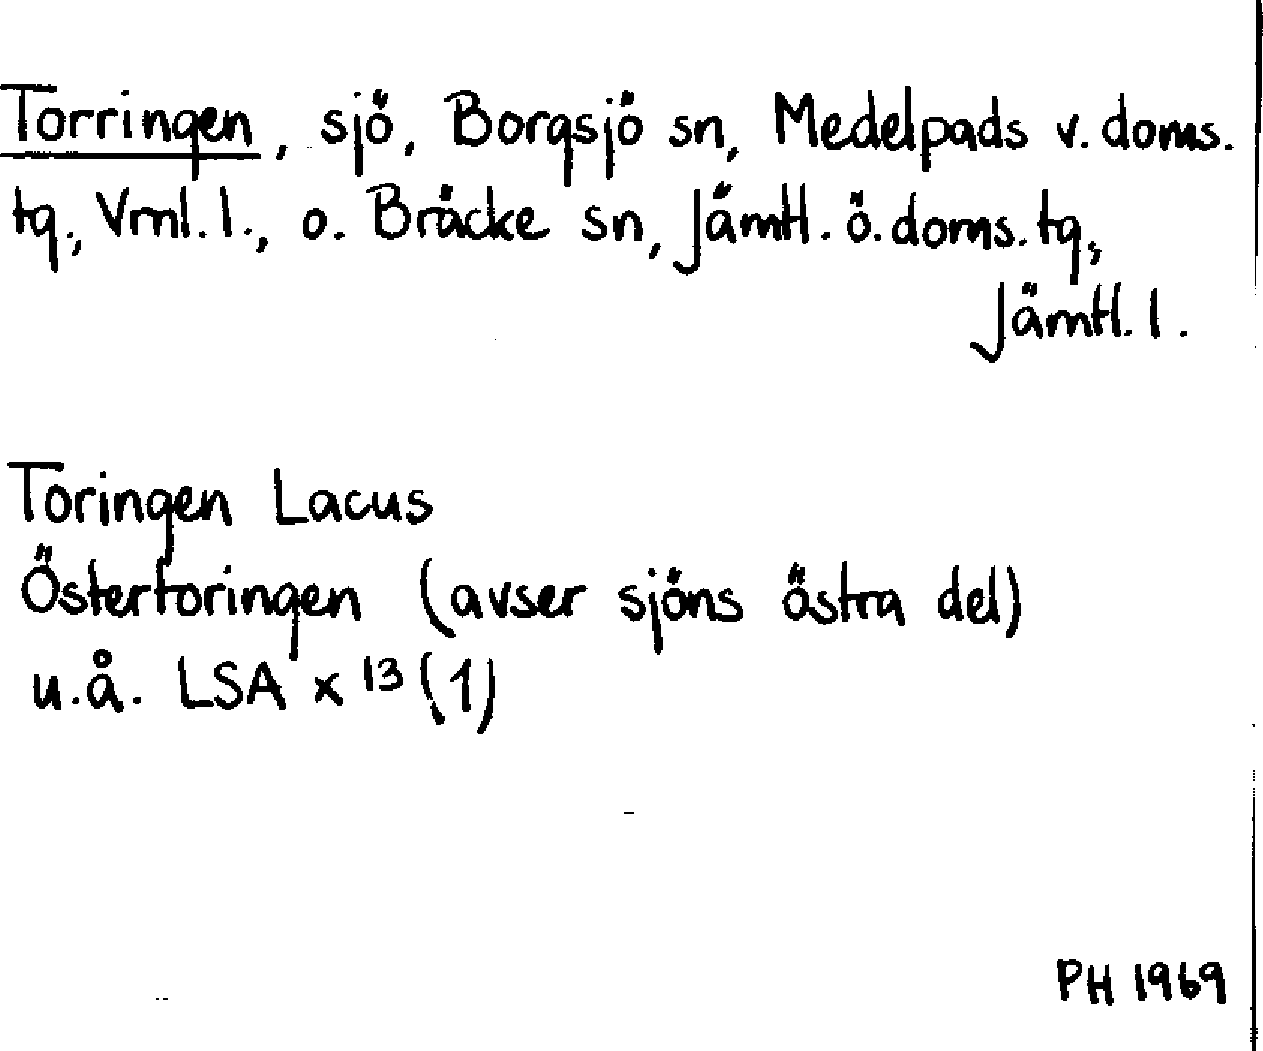 Torringen, sjö, Borgsjö sn, Medelpads v. doms.
tg, Vrnl. l., o. Bräcke sn, Jämtl. ö. doms. tg,
Jämtl. l.
Toringen Lacus
Östertoringen (avser sjöns östra del)
u.å. LSA x 13 (1)
PH 1969